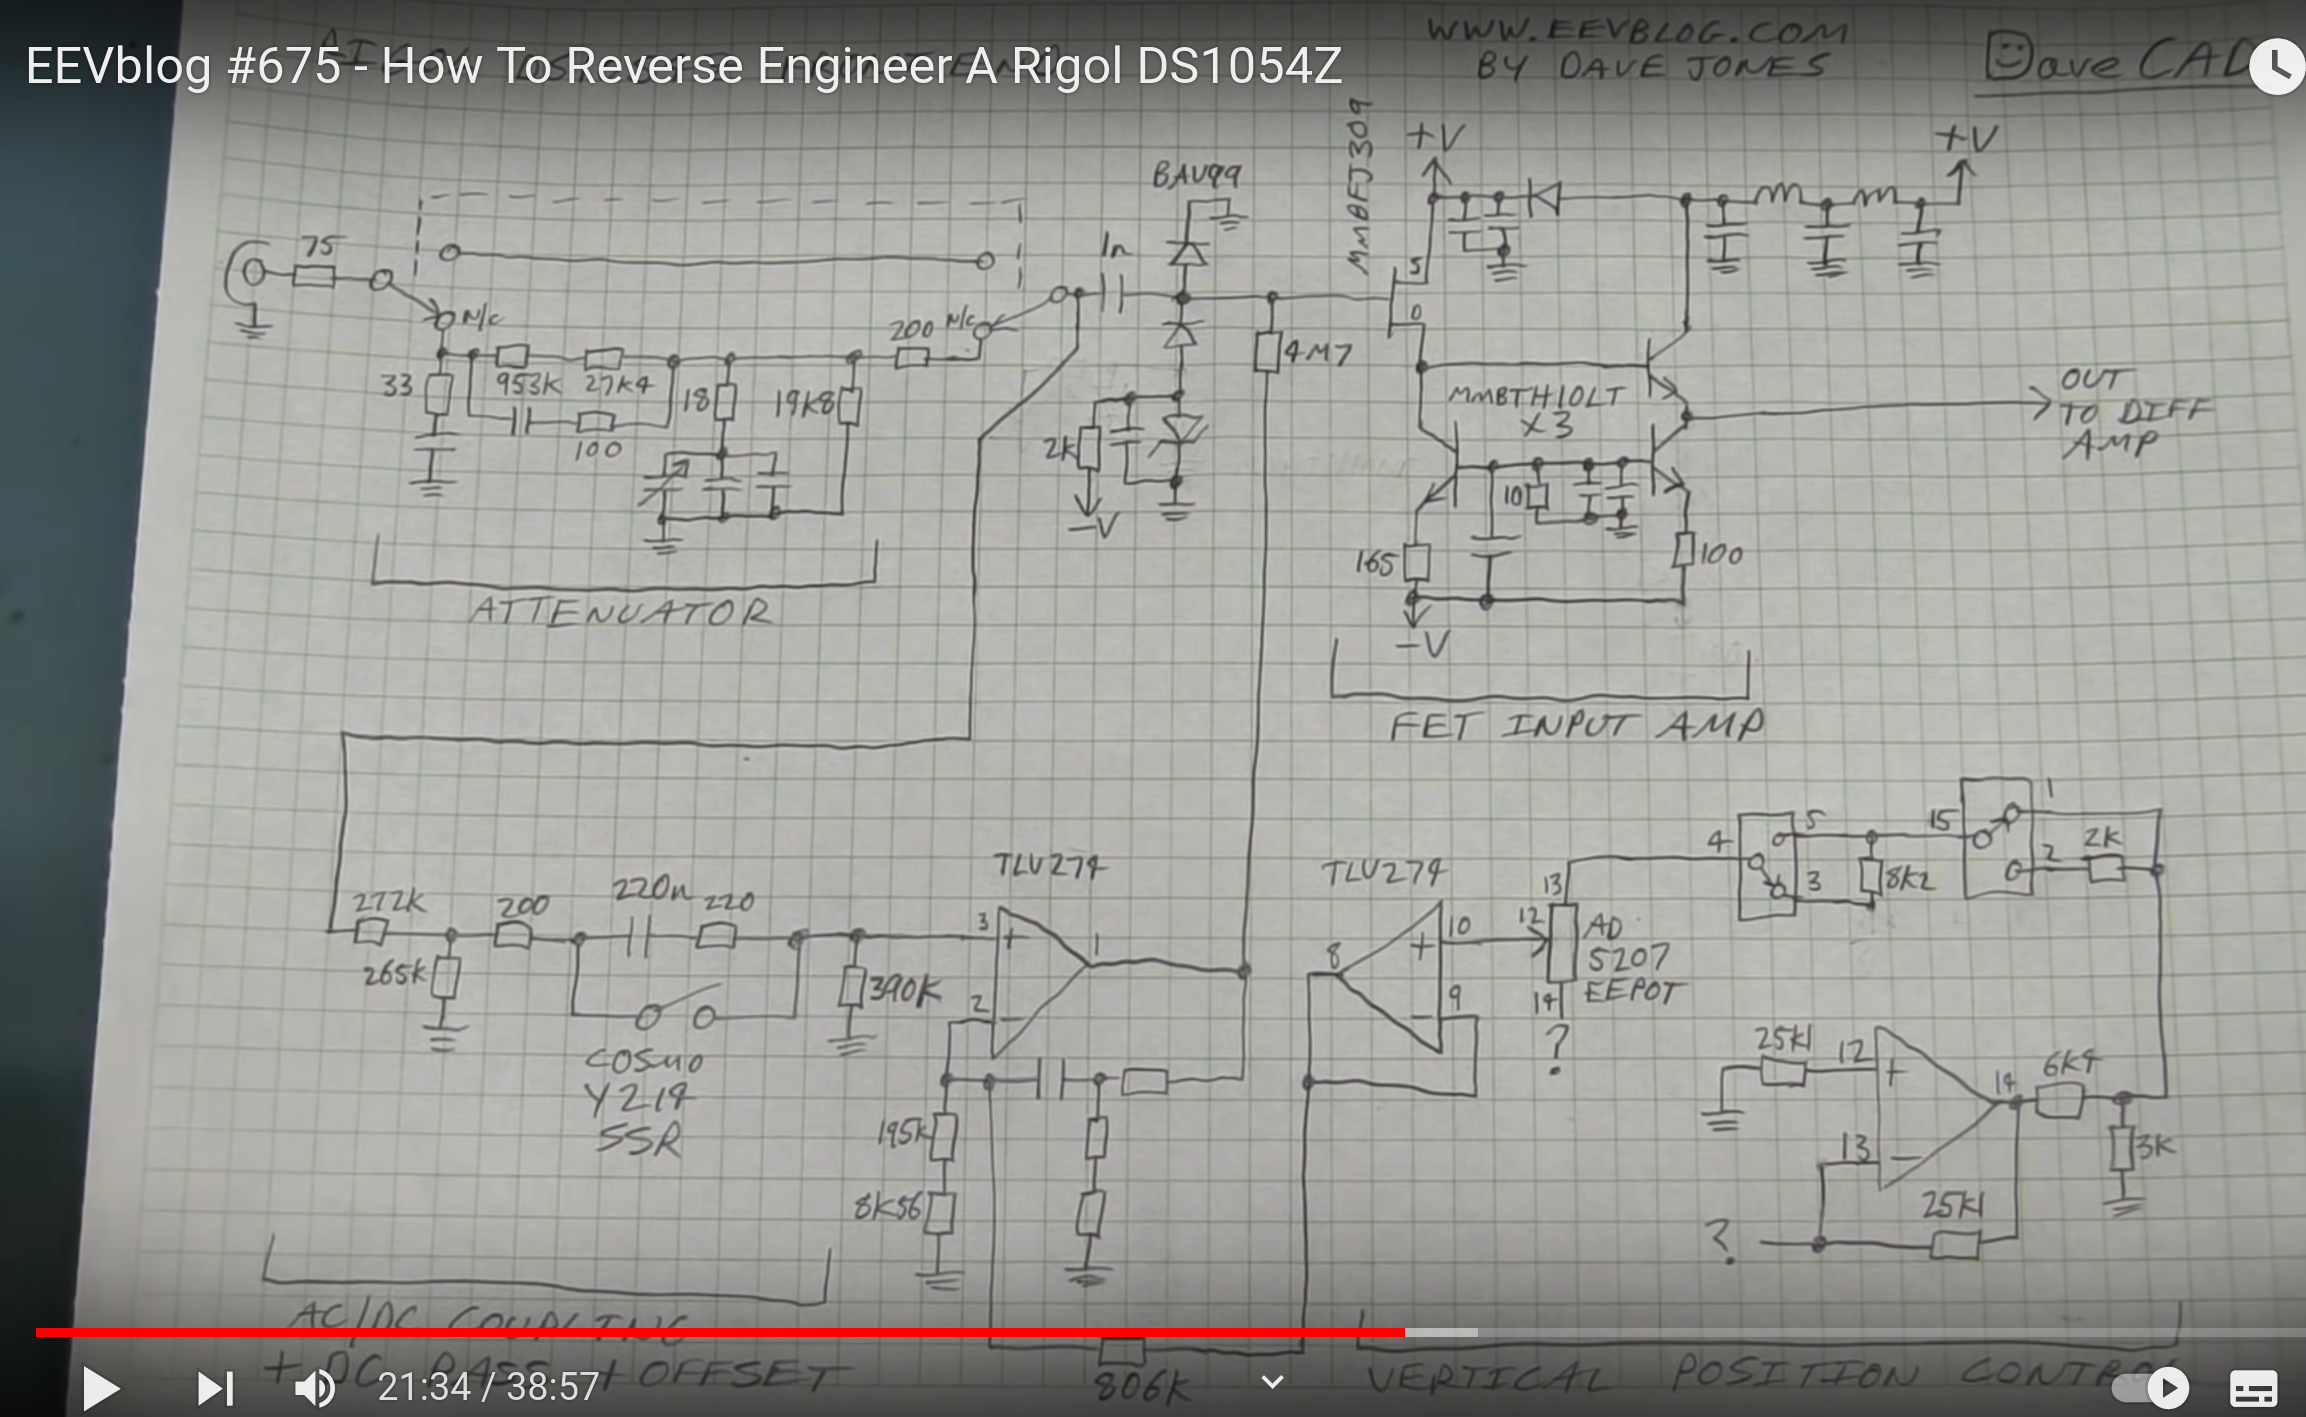 EEVblog #675 - How To Reverse Engineer A Rigol DS1054Z
WWW.EEVBLOG.COM
BY DAVE JONES
Dave CAD
+V
+V
BAV99
MMBFJ309
75
1n
S
D
N/C
200
N/C
33
953K
27K4
18
19K8
100
4M7
2K
-V
MMBTH10LT
X3
10
165
100
-V
OUT
TO DIFF
AMP
ATTENUATOR
FET INPUT AMP
272K
200
220n
220
265K
390K
COSMO
Y214
SSR
TLV274
3
+
1
2
-
195K
8K56
806K
TLV274
8
+
10
9
-
13
12
14
?
AD
5207
EEPOT
4
5
3
8K2
15
1
2
2K
25K1
12
+
13
-
14
6K4
3K
25K1
?
AC/DC COUPLING
+ DC BASS + OFFSET
VERTICAL POSITION CONTROL
21:34 / 38:57